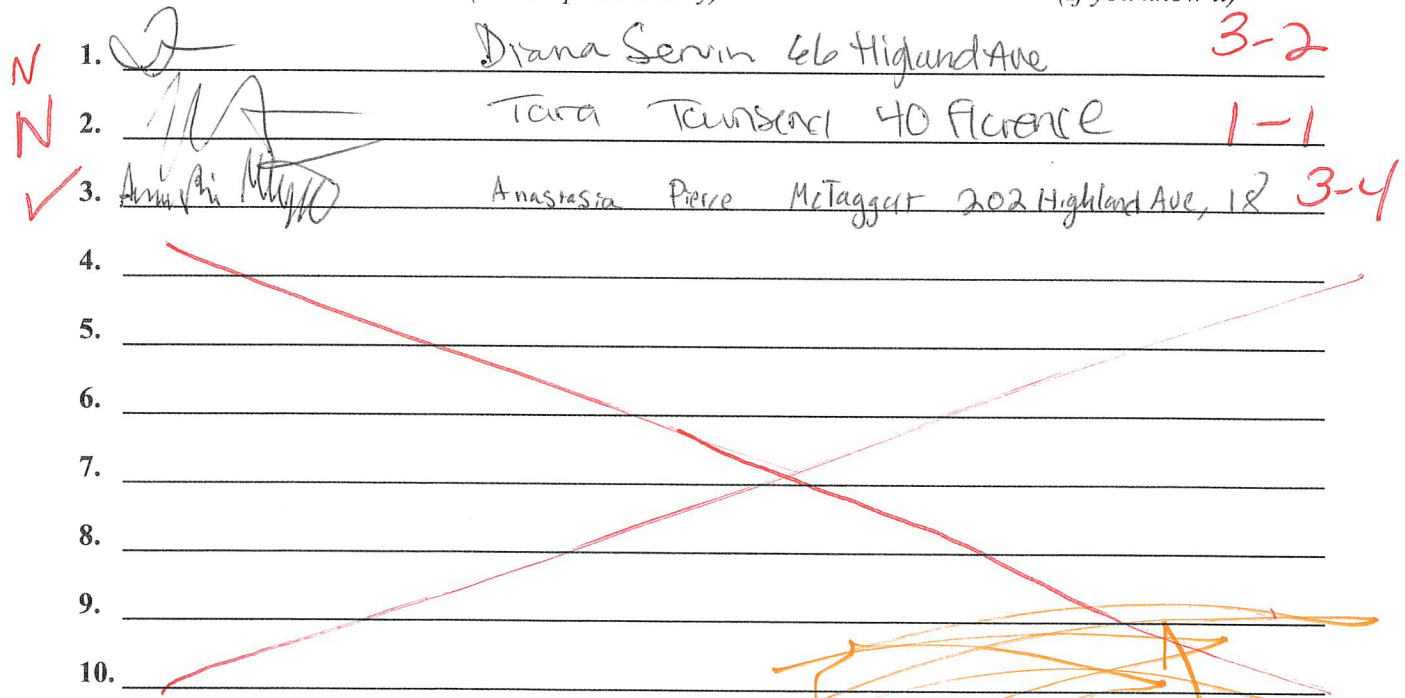 (if you know it)
N 1. Diana Servin 66 Higland Ave 3-2
N 2. Tara Townsend 40 Florence 1-1
✓ 3. Anastasia Pierce McTaggart 202 Highland Ave, 18 3-4
4.
5.
6.
7.
8.
9.
10.